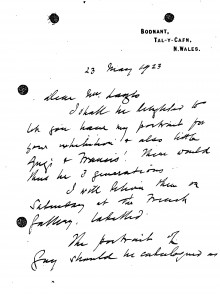 BODNANT,
TAL-Y-CAFN,
N. WALES.
23 May 1923
Dear Mr.
I shall be delighted to
let you have my portrait for
your exhibition & also little
& Francis'. There would
thus be 3 generations.
I will deliver them on
Saturday at the French
Gallery. Labelled.
The portrait of
should be catalogued as